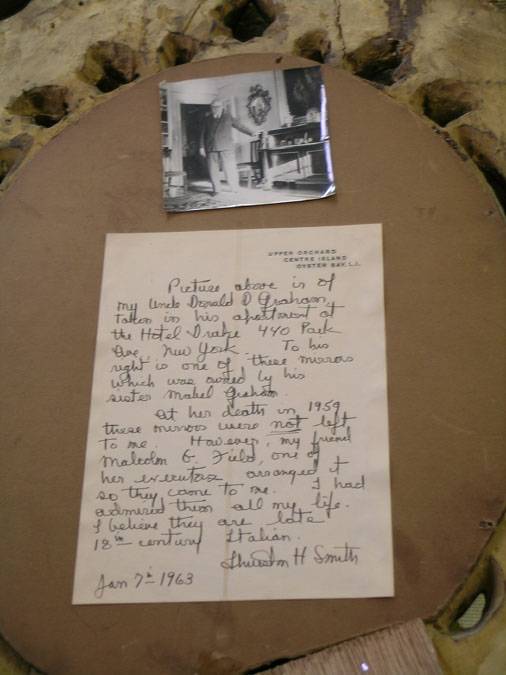 UPPER ORCHARD
CENTRE ISLAND
OYSTER BAY, L.I.
Picture above is of
my Uncle Donald D Graham,
Taken in his apartment at
the Hotel Drake 440 Park
Ave, New York. To his
right is one of these mirrors
which was owned by his
sister Mabel Graham.
At her death in 1959
these mirrors were not left
to me. However, my friend
Malcolm G. Field, one of
her executors arranged it
so they came to me. I had
admired them all my life.
I believe they are late
18th century Italian.
Thurston H Smith
Jan 7th 1963